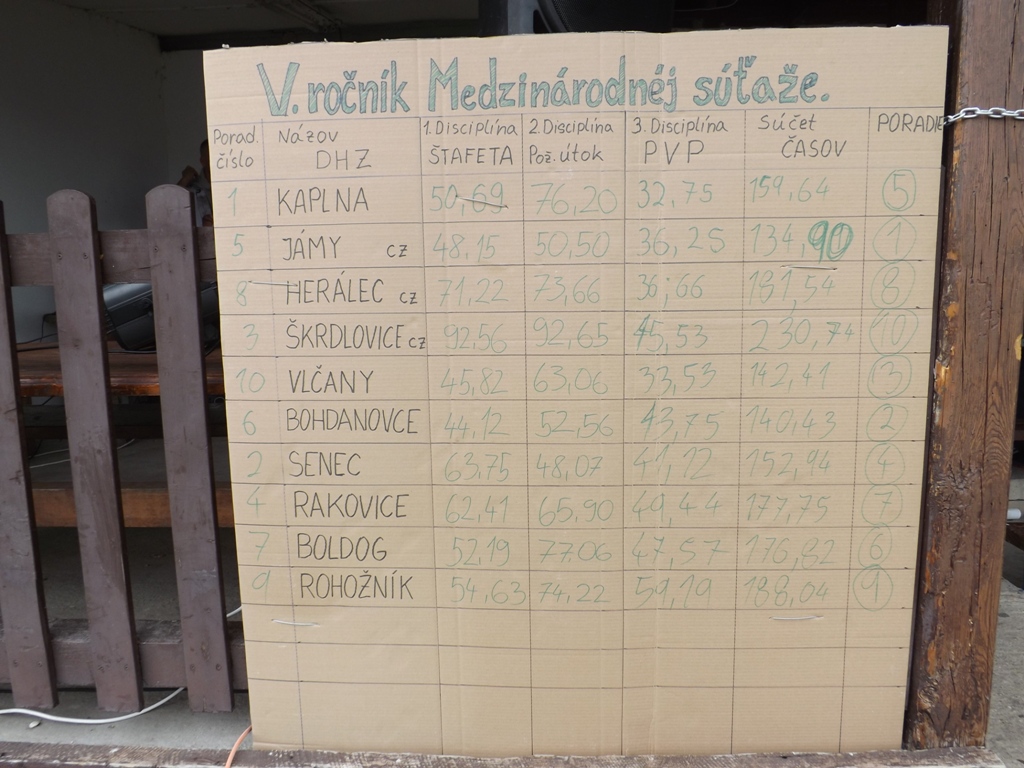 V. ročník Medzinárodnéj súťaže.
Porad. číslo Názov DHZ 1. Disciplína ŠTAFETA 2. Disciplína Pož. útok 3. Disciplína PVP Súčet ČASOV PORADIE
1 KAPLNA 50,69 76,20 32,75 159,64 5
5 JÁMY CZ 48,15 50,50 36,25 134,90 1
8 HERÁLEC CZ 71,22 73,66 36,66 181,54 8
3 ŠKRDLOVICE CZ 92,56 92,65 45,53 230,74 10
10 VLČANY 45,82 63,06 33,53 142,41 3
6 BOHDANOVCE 44,12 52,56 43,75 140,43 2
2 SENEC 63,75 48,07 41,12 152,94 4
4 RAKOVICE 62,41 65,90 49,44 177,75 7
7 BOLDOG 52,19 77,06 47,57 176,82 6
9 ROHOŽNÍK 54,63 74,22 59,19 188,04 9